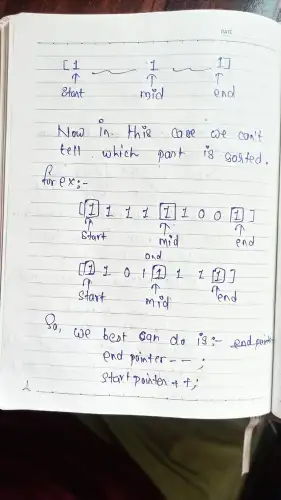 DATE
[1 1 1]
↑ ↑ ↑
Start mid end
Now in this case we can't
tell which part is sorted.
for ex:-
[1 1 1 1 1 1 0 0 1]
↑ ↑ ↑
Start mid end
and
[1 1 0 1 1 1 1 1]
↑ ↑ ↑
Start mid end
So, we best can do is:- end pointer
end pointer--;
start pointer++;